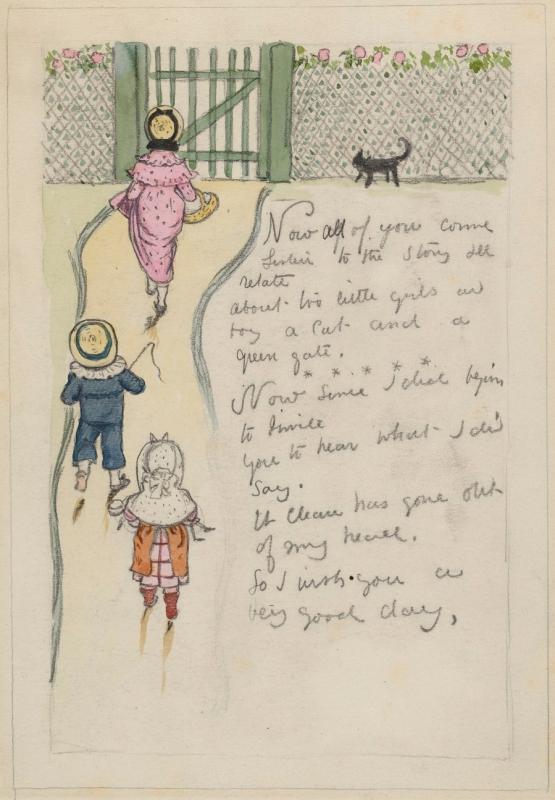 Now all of you come
listen to the story Ill
relate
about two little girls and
boy a Cat and a
green gate.
* * * * *
Now since I did begin
to Invite
you to hear what I did
say.
It clean has gone out
of my head.
So I wish you a
very good day,